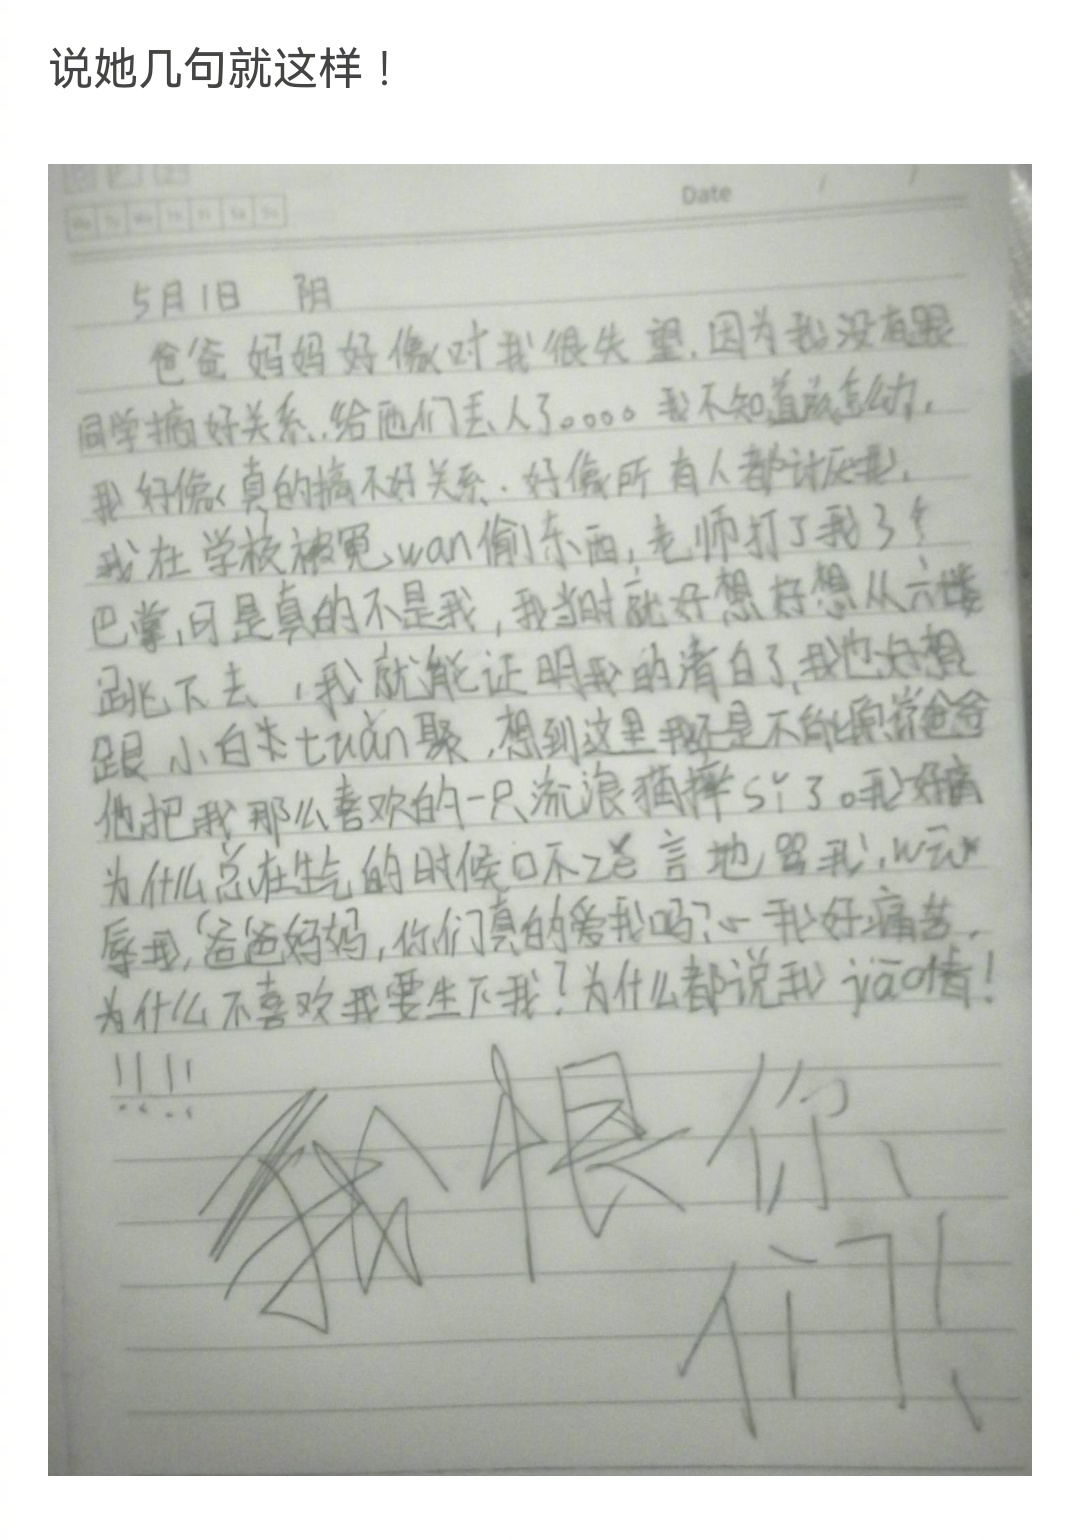 说她几句就这样！
Date / /
Mo Tu We Th Fr Sa Su
5月1日 阴
爸爸妈妈好像对我很失望.因为我没有跟
同学搞好关系..给他们丢人了。。。。我不知道该怎么办.
我好像真的搞不好关系.好像所有人都讨厌我.
我在学校被冤wan偷东西,老师打了我3个
巴掌,可是真的不是我,我当时就好想好想从六楼
跳下去,我就能证明我的清白了,我也好想
跟小白朱tuán聚,想到这里我还是不能原谅爸爸
他把我那么喜欢的一只流浪猫摔sǐ了。我好痛
为什么总在生气的时候口不zé言地骂我,wǔ
辱我,爸爸妈妈,你们真的爱我吗?我好痛苦.
为什么不喜欢我要生下我?为什么都说我jiāo情!
!!!!
我恨你
们!